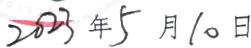 2023年5月10日